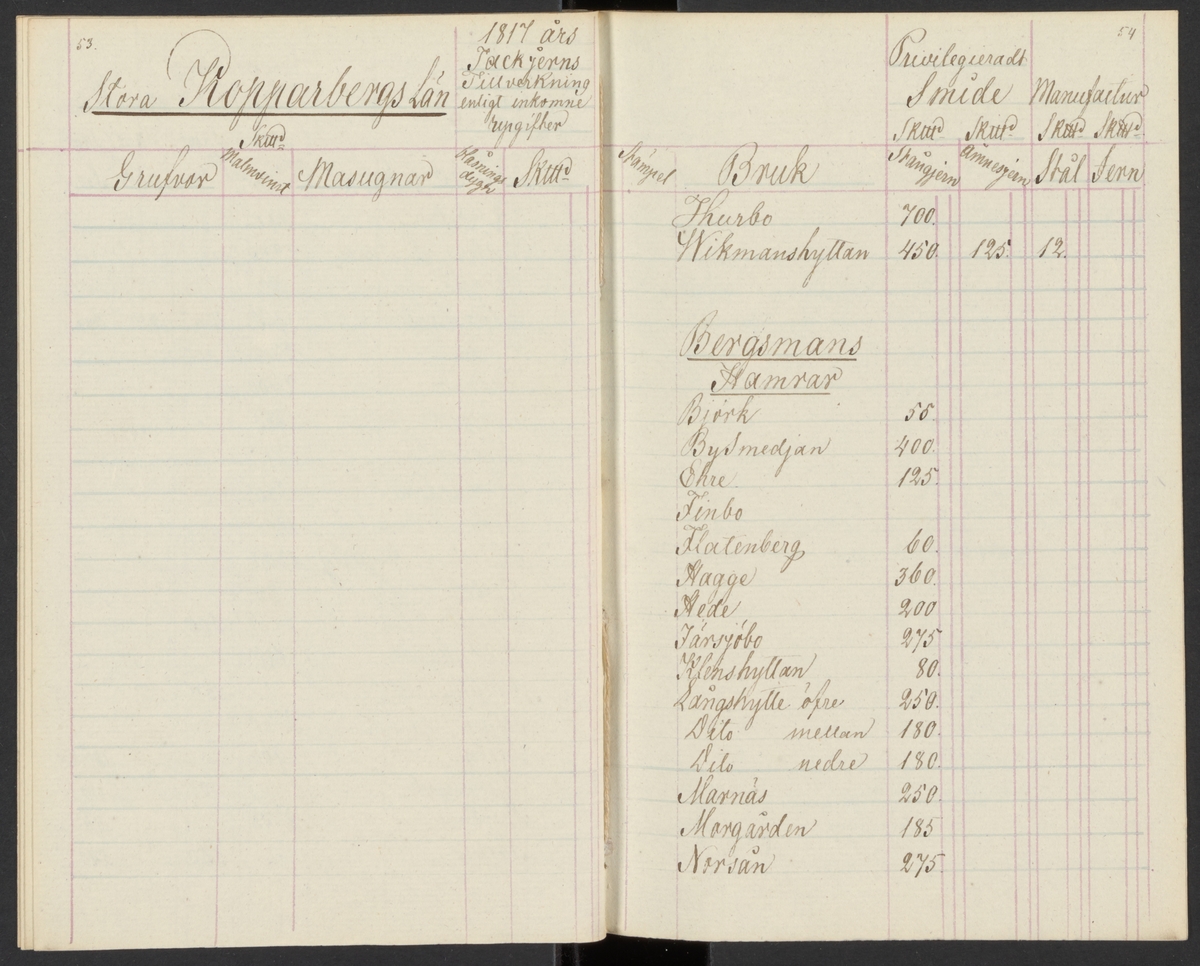 53.
Stora Kopparbergs Län
1817 års
Tackjerns
Tillverkning
enligt inkomne
uppgifter
Skttd
Grufvor Malmvinst Masugnar Blåsnings dygn Skttd
54
Privilegieradt
Smide Manufactur
Skttd Skttd Skttd Skttd
Stämpel Bruk Stångjern Ämnesjern Stål Jern
Thurbo 700.
Wikmanshyttan 450. 125. 12.
Bergsmans
Hamrar
Björk 55.
By Smedjan 400.
Ehre 125.
Finbo
Flatenberg 60.
Hagge 360.
Hede 200
Järsjöbo 275
Klenshyttan 80.
Långshytte öfre 250.
Dito mellan 180.
Dito nedre 180.
Marnäs 250.
Morgården 185
Norsån 275.